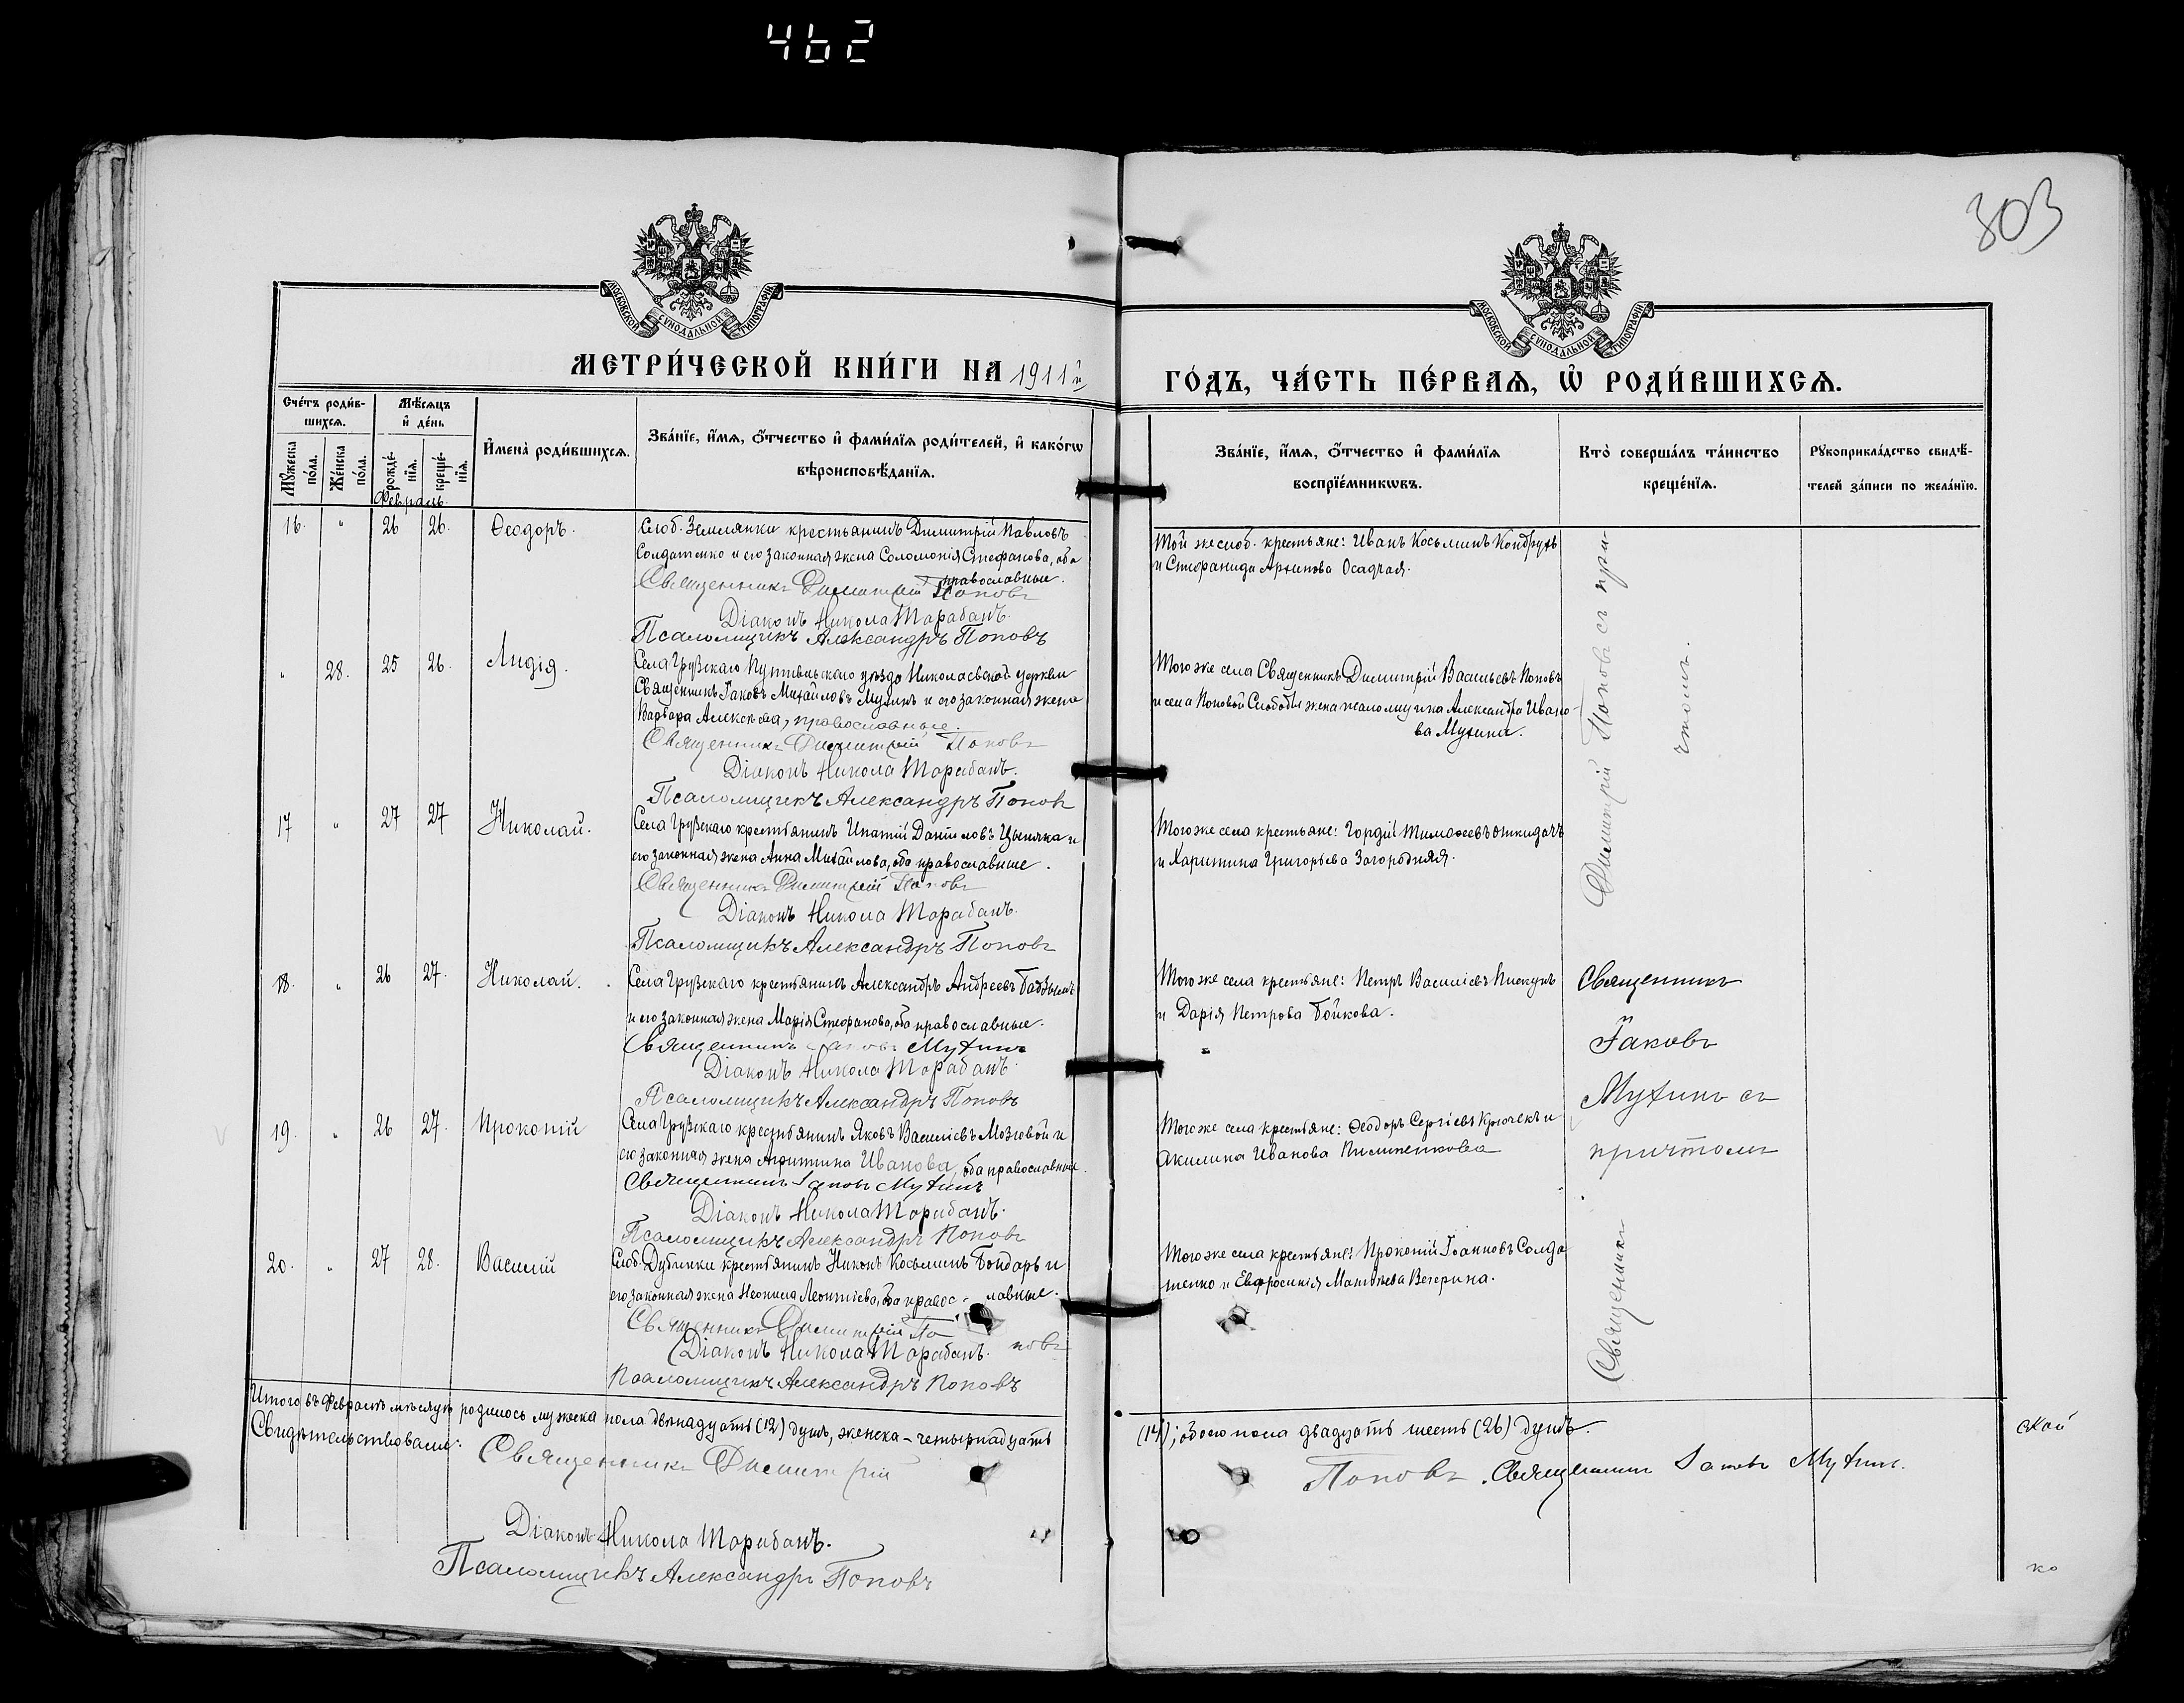 462
303
МОСКОВСКОЙ СѴНОДАЛЬНОЙ ТИПОГРАФІИ
МОСКОВСКОЙ СѴНОДАЛЬНОЙ ТИПОГРАФІИ
МЕТРИ́ЧЕСКОЙ КНИ́ГИ НА 1911й
ГО́ДЪ, ЧА́СТЬ ПЕ́РВАѦ, Ѡ҆ РОДИ́ВШИХСѦ.
Сче́тъ роди́в-
шихсѧ.
Мꙋ́жеска по́ла.
Же́нска по́ла.
Мѣ́сѧцъ
и҆ де́нь
рожде́-нїѧ.
креще́-нїѧ.
И҆мена̀ роди́вшихсѧ.
Зва́нїе, и҆́мѧ, ѻ҆́тчество и҆ фами́лїѧ роди́телей, и҆ како́гѡ
вѣроисповѣ́данїѧ.
Зва́нїе, и҆́мѧ, ѻ҆́тчество и҆ фами́лїѧ
воспрїе́мникѡвъ.
Кто̀ соверша́лъ та́инство
креще́нїѧ.
Рꙋкоприкла́дство свидѣ́-
телей за́писи по жела́нїю.
Февраль.
16. " 26 26. Ѳеодоръ.
Слоб. Землянки крестьянинъ Димитрій Павловъ
Солдатенко и его законная жена Соломонія Стефанова, оба
православные.
Священникъ Димитрій Поповъ
Діаконъ Никола Тарабанъ.
Псаломщикъ Александръ Поповъ
Той же слоб. крестьяне: Иванъ Косьминъ
и Стефанида Осадчая.
Священникъ Димитрій Поповъ съ при-
чтомъ.
" 28. 25 26. Лидія.
Села Грузскаго Путивльскаго уѣзда Николаевской церкви
Священникъ Іаковъ Михайловъ Мухинъ и его законная жена
Варвара Алексѣева, православные.
Священникъ Димитрій Поповъ
Діаконъ Никола Тарабанъ.
Псаломщикъ Александръ Поповъ
Того же села Священникъ Димитрій Васильевъ Поповъ
и села Поповой Слободы жена псаломщика Александра Ивано-
ва Мухина.
17 " 27 27 Николай.
Села Грузскаго крестьянинъ Ипатій Даніиловъ и
его законная жена Анна Михайлова, оба православные.
Священникъ Димитрій Поповъ
Діаконъ Никола Тарабанъ.
Псаломщикъ Александръ Поповъ
Того же села крестьяне: Гордій Тимоѳеевъ Откидачъ
и Харитина Григорьева Загородняя.
18. " 26 27. Николай.
Села Грузскаго крестьянинъ Александръ Андреевъ
и его законная жена Марія Стефанова, оба православные.
Священникъ Іаковъ Мухинъ
Діаконъ Никола Тарабанъ.
Псаломщикъ Александръ Поповъ
Того же села крестьяне: Петръ Василіевъ Пискунъ
и Дарія Петрова Бойкова.
Священникъ
Іаковъ
Мухинъ съ
причтомъ
19. " 26 27. Прокопій
Села Грузскаго крестьянинъ Яковъ Василіевъ Мозговой и
его законная жена Иванова, оба православные.
Священникъ Іаковъ Мухинъ
Діаконъ Никола Тарабанъ.
Псаломщикъ Александръ Поповъ
Того же села крестьяне: Ѳеодоръ Сергіевъ Крючекъ и
Акилина Иванова Пилипенкова
20. " 27 28. Василій
Слоб. Дубинки крестьянинъ Никонъ Косьминъ Бондарь и
его законная жена Неонила Леонтіева, оба православные.
Священникъ Димитрій Поповъ
Діаконъ Никола Тарабанъ.
Псаломщикъ Александръ Поповъ
Того же села крестьяне: Прокопій Іоанновъ Солда
тенко и Евфросинія Матвѣева Вечерина.
Итого въ Февралѣ мѣсяцѣ родилось мужеска пола двѣнадцать (12) душъ, женска – четырнадцать
(14); обоего пола двадцать шесть (26) душъ.
Свидѣтельствовали:
Священникъ Димитрій Поповъ. Священникъ Іаковъ Мухинъ.
Діаконъ Никола Тарабанъ.
Псаломщикъ Александръ Поповъ
ской
ко